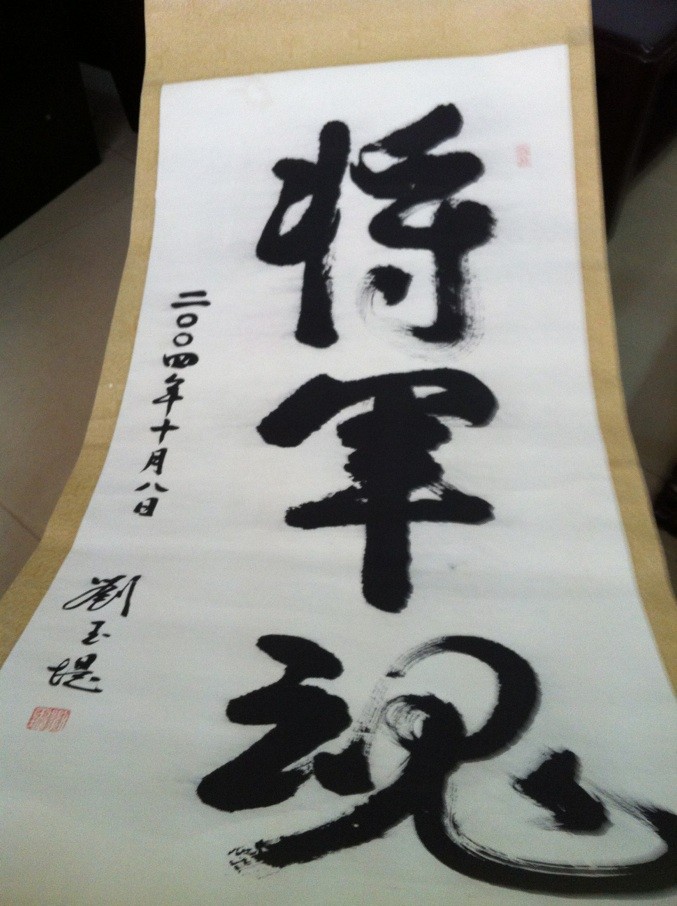 将军魂
二〇〇四年十月八日
劉玉堤